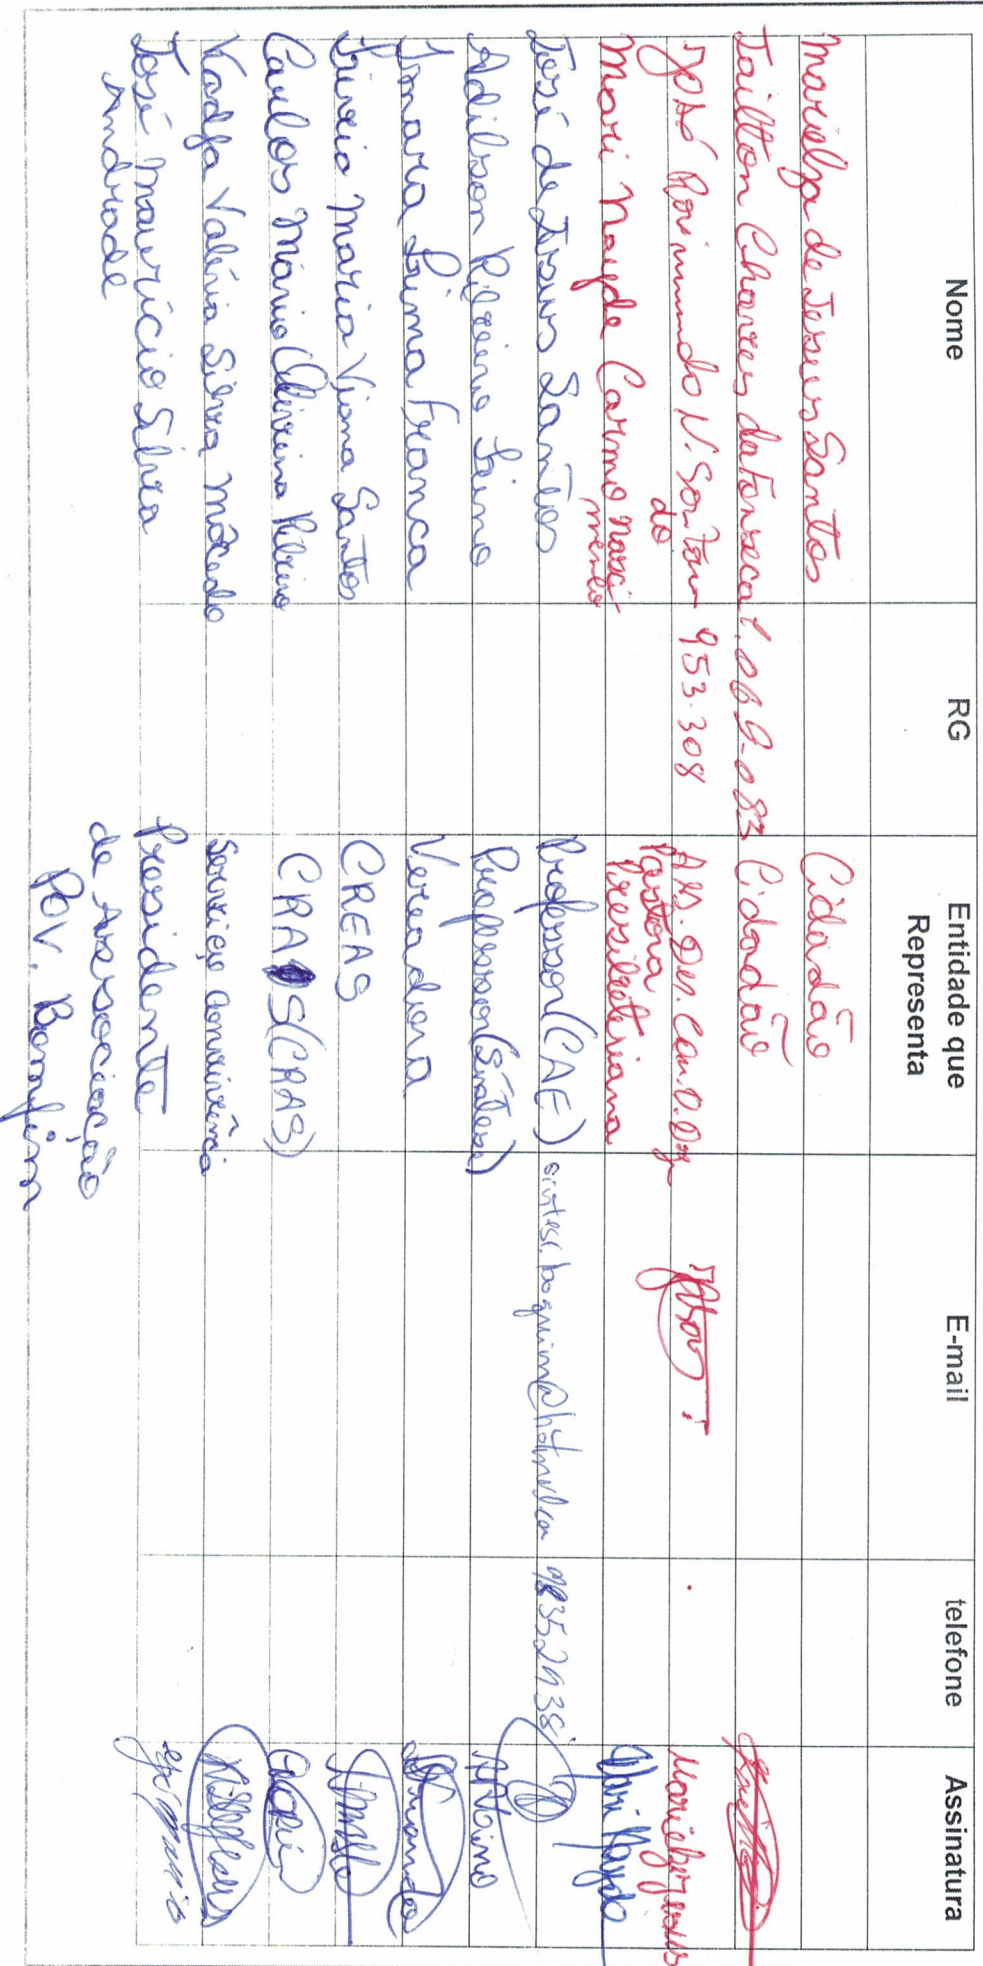 Nome RG Entidade que Representa E-mail telefone Assinatura
Marielza de Jesus Santos Cidadão
Jailton Chaves da Fonseca 1.069-083 Cidadão
José Raimundo N. Santan 953.308
Mari Nayde Carmo do Nascimento Pastora Presibiteriana Mari Nayde
José de Jesus Santos Professor (CAE) 98352938
Adilson Ribeiro Lino Professor (Sintese)
Imara Lima Franca Vereadora
Maria Viana Santos CREAS
Carlos Mário Oliveira Ribeiro CRAS (CRAS)
Kadja Valéria Silva Mácedo Serviço Convivência
José Maurício Silva Presidente
Andrade de Associação
Pov. Bomfim